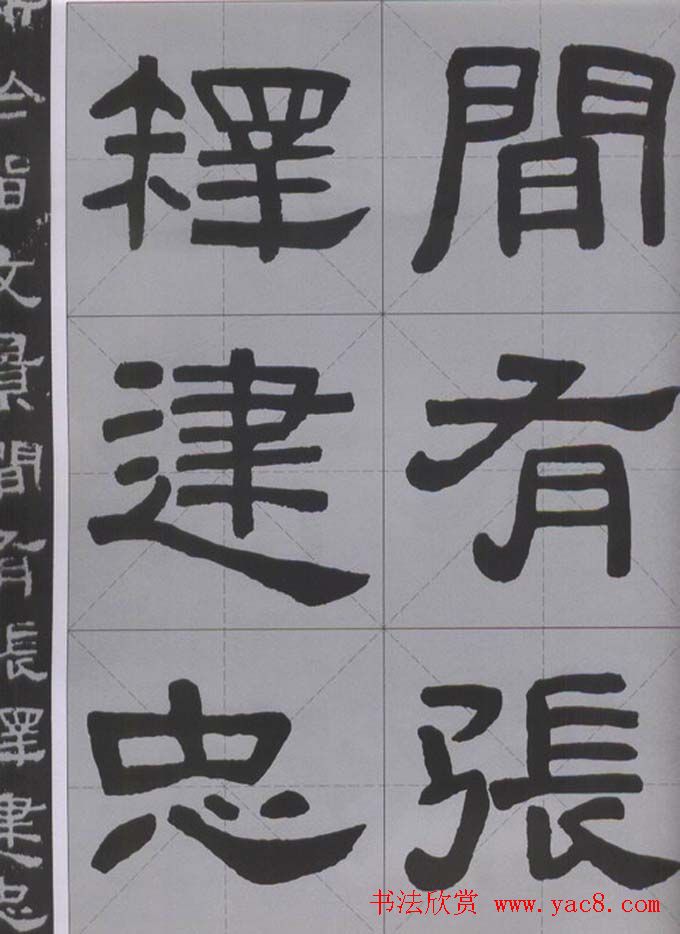 間有張
釋建忠
文景間有張釋建忠
书法欣赏 www.yac8.com